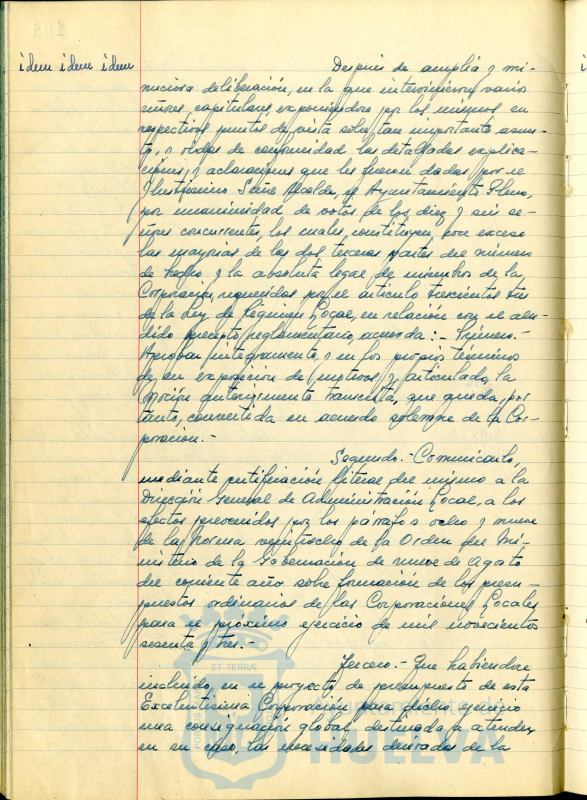 idem idem idem
Después de amplia y mi-
nuciosa deliberación, en la que intervinieron varios
señores capitulares, exponiéndose por los mismos sus
respectivos puntos de vista sobre tan importante asun-
to, y oídas de conformidad las detalladas explica-
ciones y aclaraciones que les fueron dadas por el
Ilustrísimo Señor Alcalde, el Ayuntamiento Pleno,
por unanimidad de votos de los diez y seis se-
ñores concurrentes, los cuales constituyen con exceso
las mayorías de los dos terceras partes del número
de hecho y la absoluta legal de miembros de la
Corporación, requeridas por el artículo trescientos tres
de la Ley de Régimen Local, en relación con el alu-
dido precepto reglamentario, acuerda: - Primero.-
Aprobar íntegramente, y en sus propios términos
de su exposición de motivos y articulado, la
Moción anteriormente transcrita, que queda, por
tanto, convertida en acuerdo solemne de la Cor-
poración.-
Segundo.- Comunicarlo,
mediante certificación literal del mismo a la
Dirección General de Administración Local, a los
efectos prevenidos por los párrafos ocho y nueve
de la Norma veintiocho de la Orden del Mi-
nisterio de la Gobernación de nueve de Agosto
del corriente año sobre formación de los presu-
puestos ordinarios de las Corporaciones Locales
para el próximo ejercicio de mil novecientos
sesenta y tres.-
Tercero.- Que habiéndose
incluido, en el proyecto de presupuesto de esta
Excelentísima Corporación para dicho ejercicio
una consignación global destinada a atender,
en su caso, las necesidades derivadas de la
ET TERRÆ
HUELVA